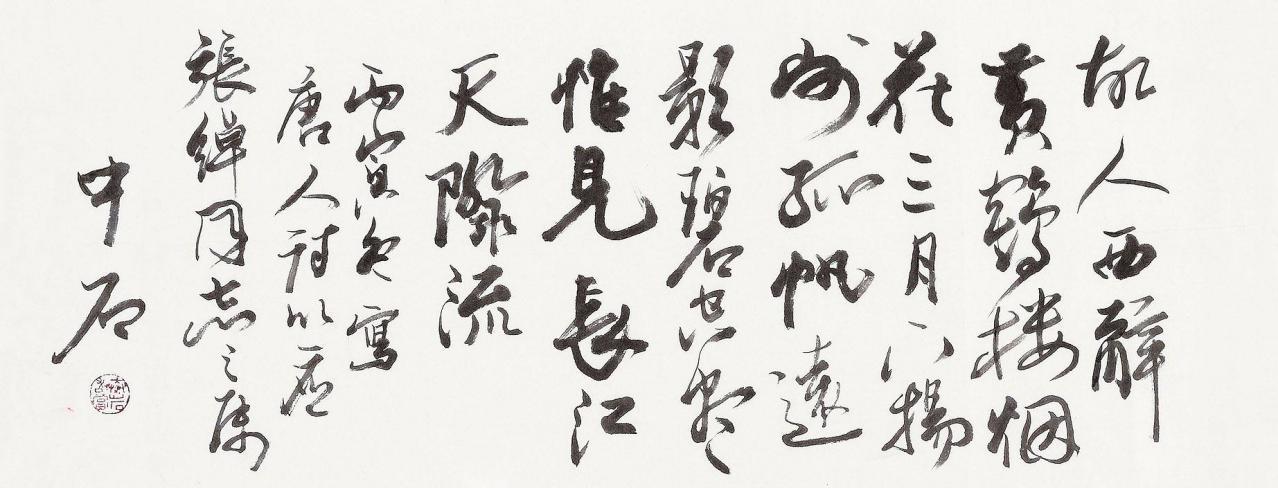 故人西辭
黃鶴樓烟
花三月下揚
州孤帆遠
影碧空盡
惟見長江
天際流
丙寅冬寫
唐人詩以應
張綽同志之屬
中石